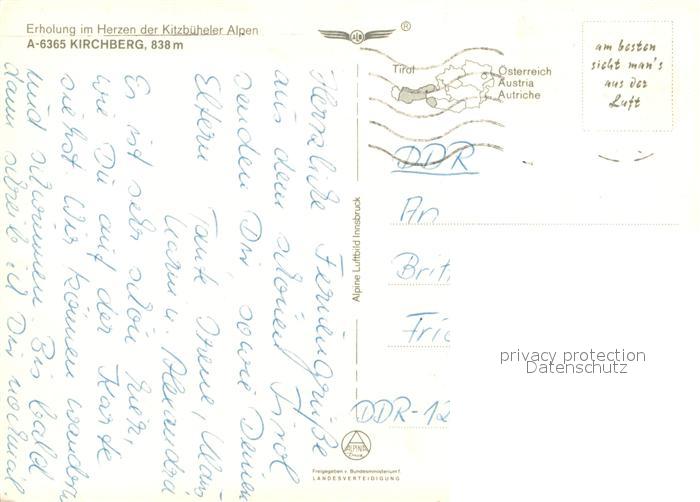 Erholung im Herzen der Kitzbüheler Alpen
A-6365 KIRCHBERG, 838 m
Herzliche Feriengrüße
aus dem schönen Tirol
senden Dir sowie Deinen
Eltern
Tante Irene, Klaus
Karin u. Alexandra
Es ist sehr schön hier,
wie Du auf der Karte
siehst. Wir können wandern
und schwimmen. Bis bald
dann schreib ich Dir nochmal
Alpine Luftbild Innsbruck
®
Tirol
Österreich
Austria
Autriche
am besten
sieht man's
aus der
Luft
DDR
An
Brit
Frie
DDR-12
privacy protection
Datenschutz
ALPINE
Freigegeben v. Bundesministerium f.
LANDESVERTEIDIGUNG